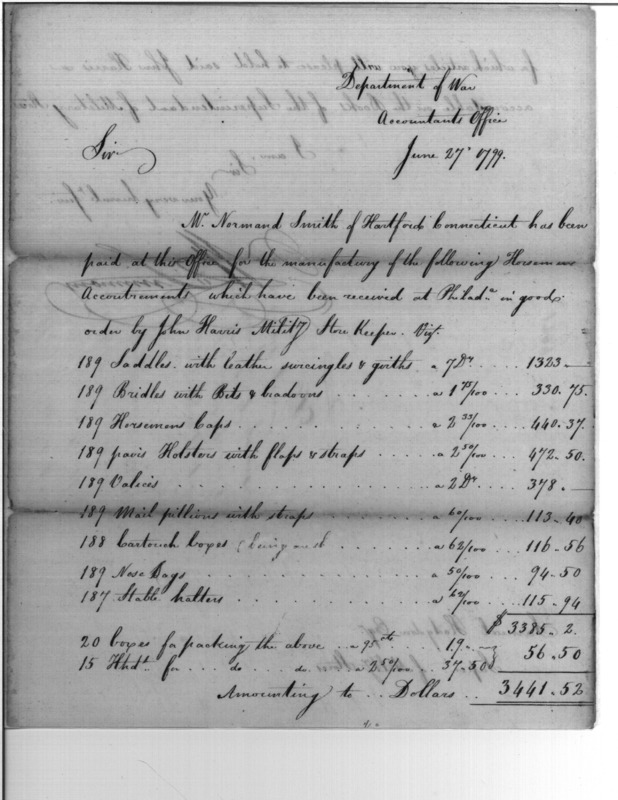 Department of War
Accountants Office
June 27th 1799.
Sir
Mr. Normand Smith of Hartford Connecticut has been
paid at this Office for the manufactory of the following Horsemens
Accoutrements which have been received at Philada. in good
order by John Harris Mility Store Keeper. Vizt.
189 Saddles with leather surcingles & girths a 7 Drs .... 1323 —
189 Bridles with Bits & bradoons ..... a 1 75/100 ... 330.75.
189 Horsemens Caps ..... a 2 33/100 ... 440.37.
189 pairs Holsters with flaps & straps ..... a 2 50/100 ... 472.50.
189 Valices ..... a 2 Drs .... 378. —
189 Mail pillions with straps ..... a 60/100 ... 113.40
188 Cartouch boxes ..... a 62/100 ... 116.56
189 Nose Bags ..... a 50/100 ... 94.50
187 Stable halters ..... a 62/100 ... 115.94
$ 3385.2.
20 boxes for packing the above .. a 95 cts ... 19. —
15 Hhds. for ... do ... do .. a 2 50/100 .. 37.50 56.50
Amounting to .. Dollars .. 3441.52